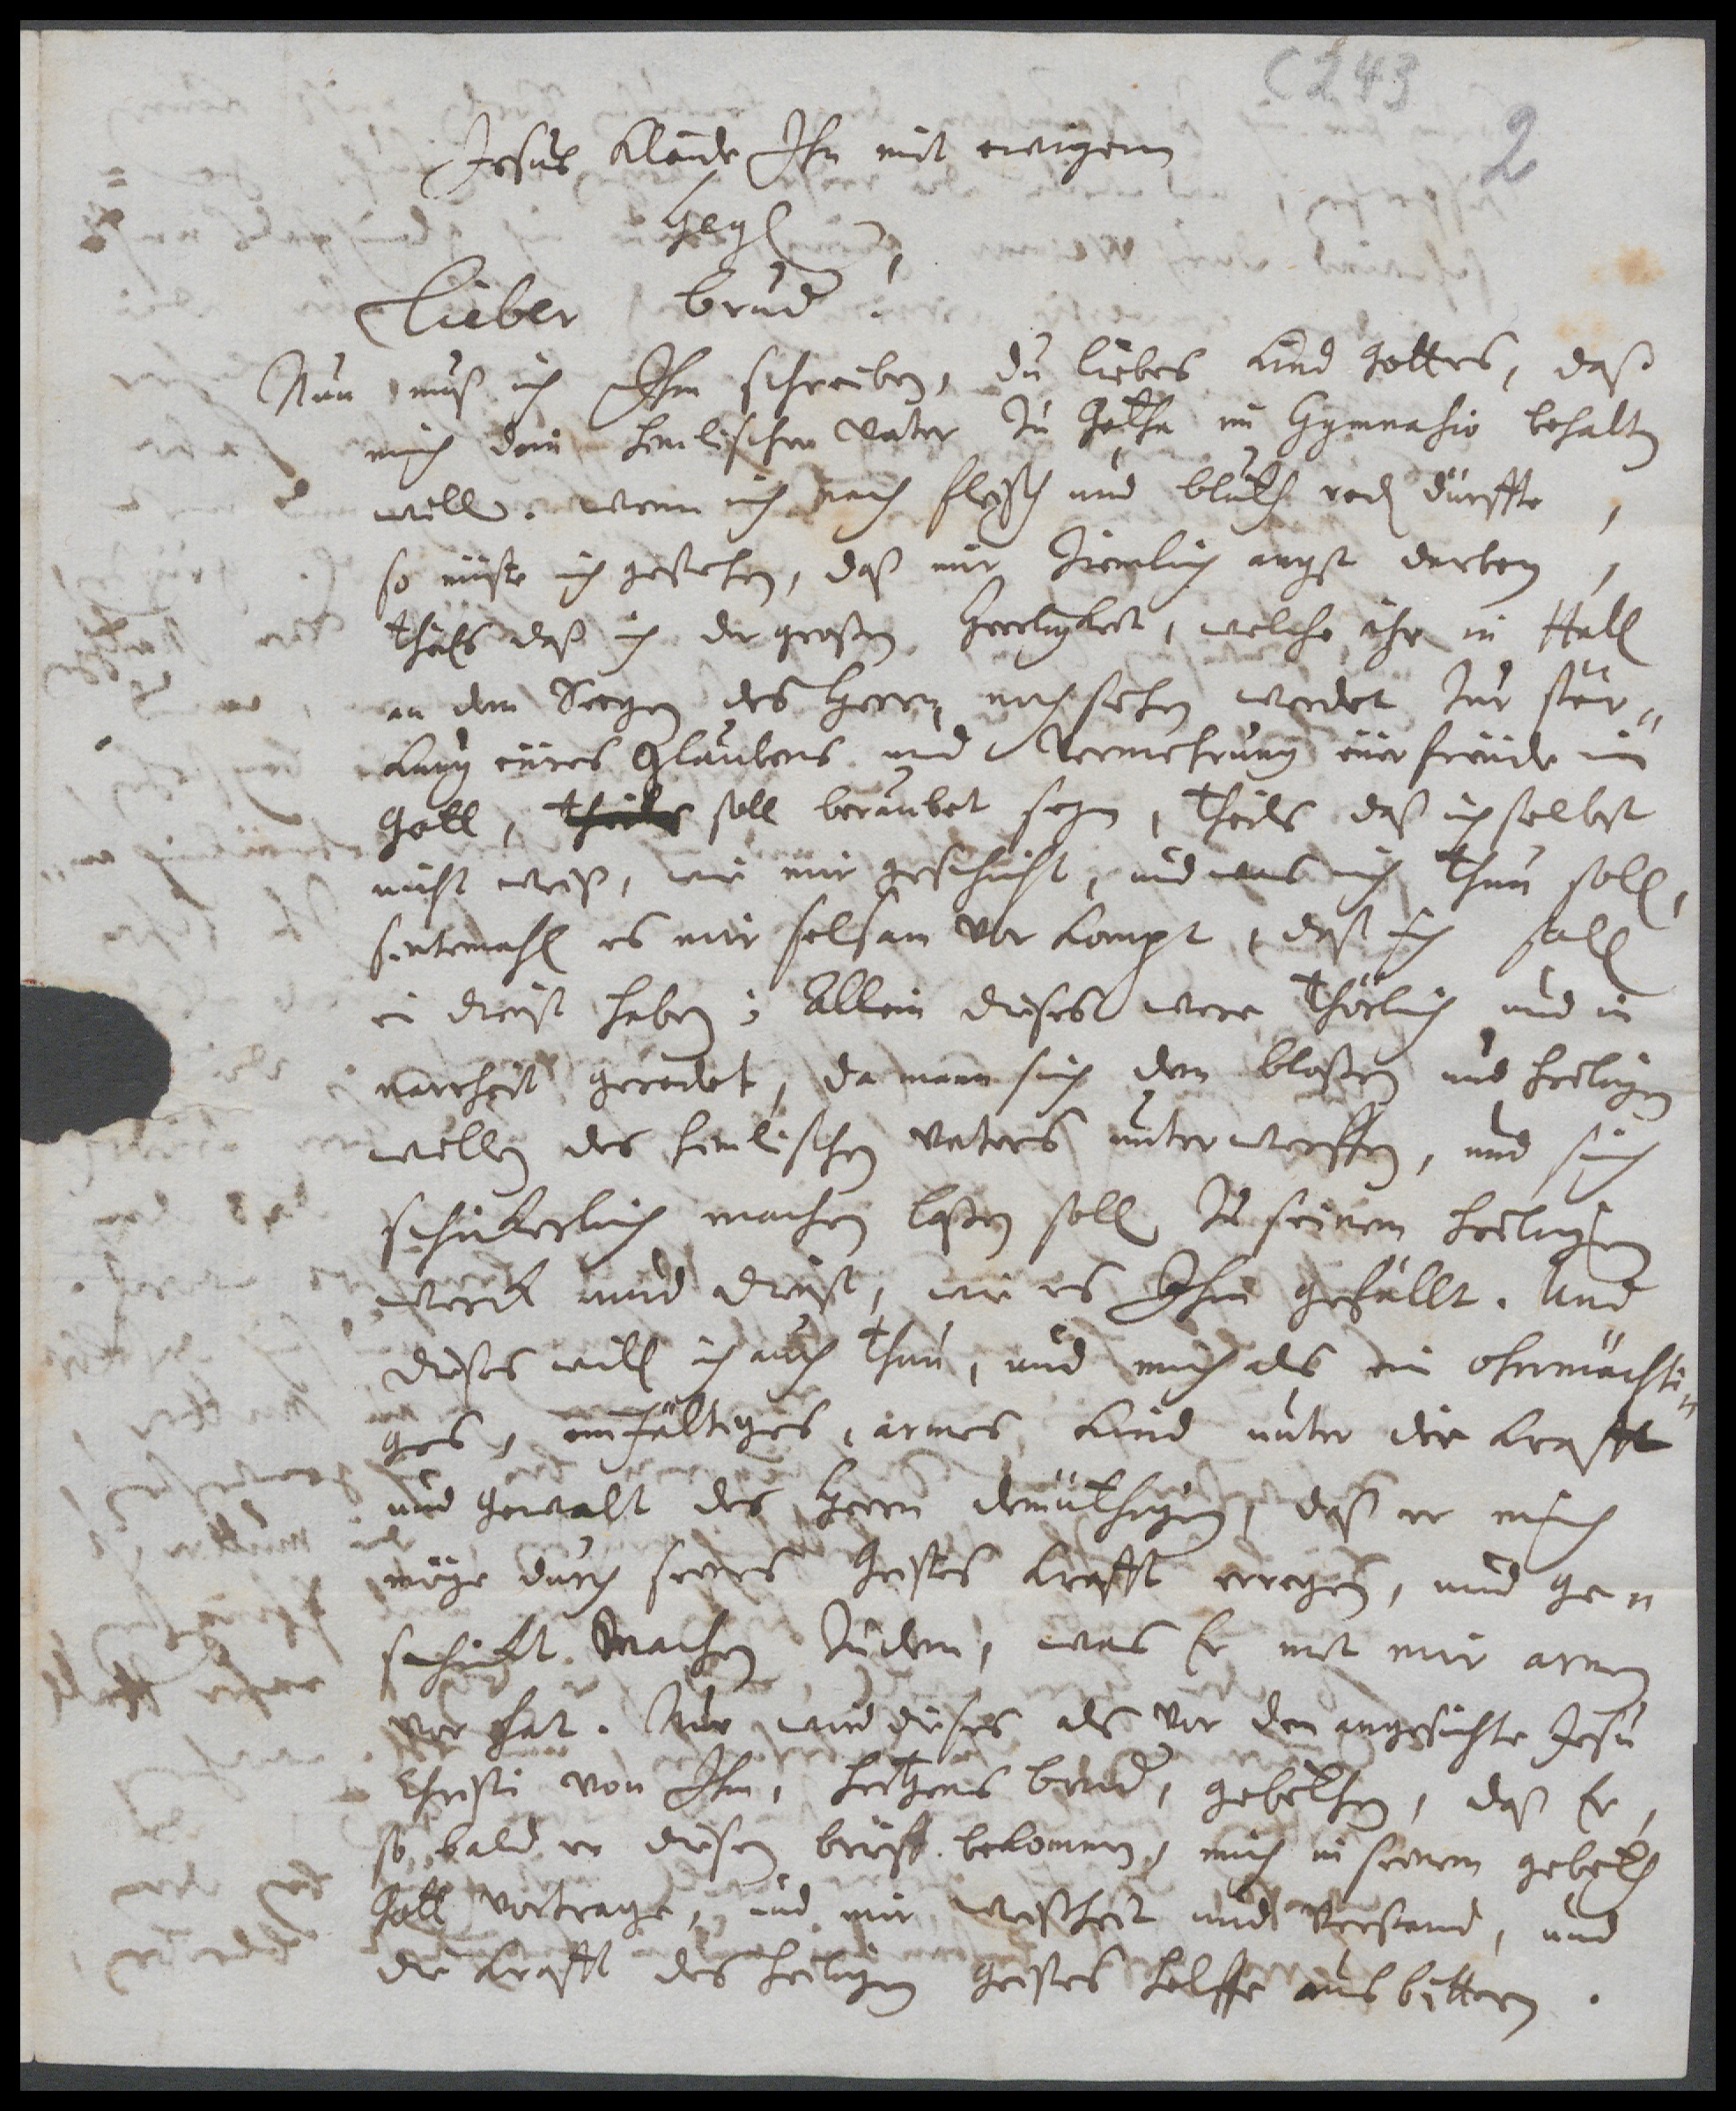 C 243
2
Jesus kleide Ihn mit ewigem
Heyl
Lieber Brud!
Nun muß ich Ihm schreiben, du liebes kind Gottes, daß
mich dein himlischer Vater zu Gotha im Gymnasio behalten
will. wenn ich nach fleisch und bluth reden dürffte,
so müste ich gestehen, daß mir ziemlich angst darbey,
theils daß ich der großen Herrligkeit, welche ihr in Hall
an dem Seegen des Herrn noch sehen werdet zur stär-
kung eüres Glaubens und Vermehrung eürer freüde in
Gott, theils soll beraubet seyn, theils daß ich selbst
nicht weiß, wie mir geschicht, und was ich thun soll,
sintemahl es mir selsam vor kompt, daß ich soll
ein dienst haben; Allein dieses were thörlich und in
narrheit geredet, da mann sich dem bloßen und heiligen
willen des himlischen vaters unterwerffen, und sich
schickerlich machen laßen soll zu seinem heiligen
werck und dienst, wie es Ihm gefällt. Und
dieses will ich auch thun, und mich als ein ohnmächti-
ges, einfältiges, armes kind unter die krafft
und gewalt des Herrn demüthigen, daß er mich
möge durch seines Geistes krafft erregen, und ge-
schickt machen zu dem, was Er mit mir armen
vor hat. Nur wird dieses als vor dem angesichte Jesu
Christi von Ihm, hertzens brud, gebethen, daß Er,
so bald er diesen brieff bekommen, mich in seinem gebeth
Gott vortrage, und mir weißheit und Verstand, und
die krafft des heiligen geistes helffe aus bitten.